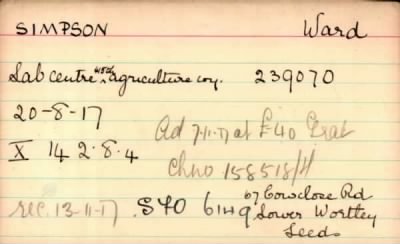 SIMPSON Ward
Lab centre 45th agriculture coy. 239070
20-8-17
Ad 7-11-17 at £40 Grat
X 14 2.8.4
Ch no 158518/H
rec. 13-11-17. S40 6149 67 Cowclose Rd
Lower Wortley
Leeds